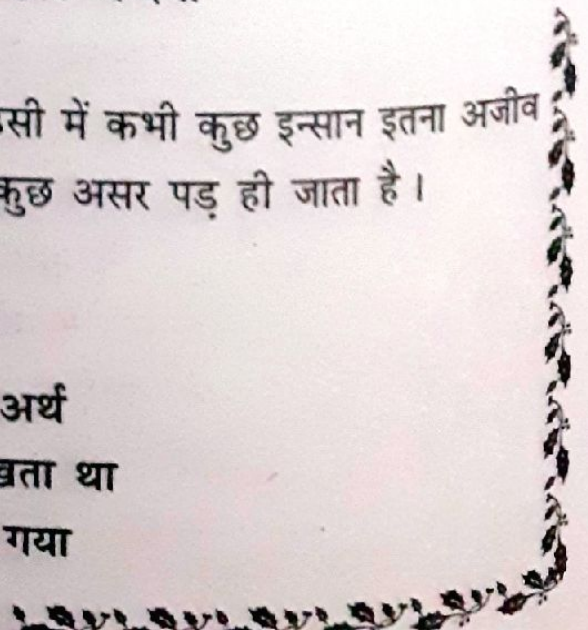 में कभी कुछ इन्सान इतना अजीव
कुछ असर पड़ ही जाता है ।
अर्थ
था
गया